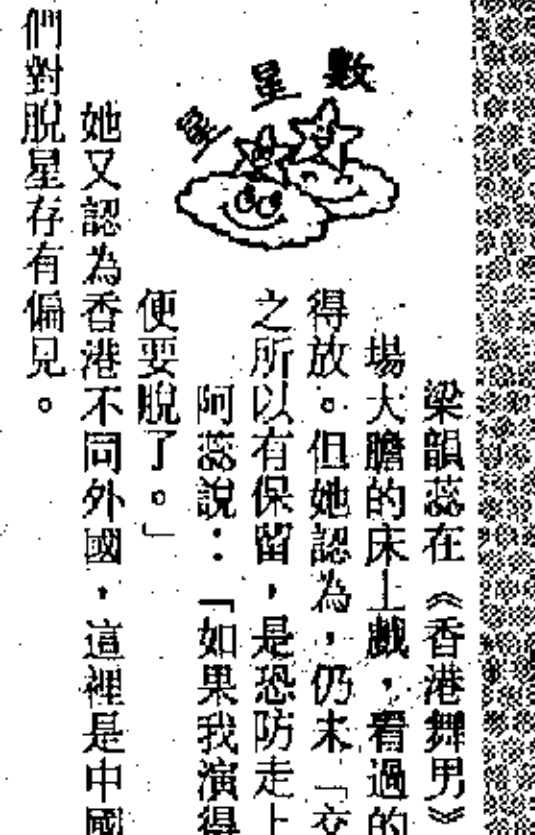 數星星
梁韻蕊在《香港舞男》
場大膽的床上戲，看過的
得放。但她認為，仍未「交
之所以有保留，是恐防走上
阿蕊說：「如果我演得
便要脫了。」
她又認為香港不同外國，這裡是中國
們對脫星存有偏見。